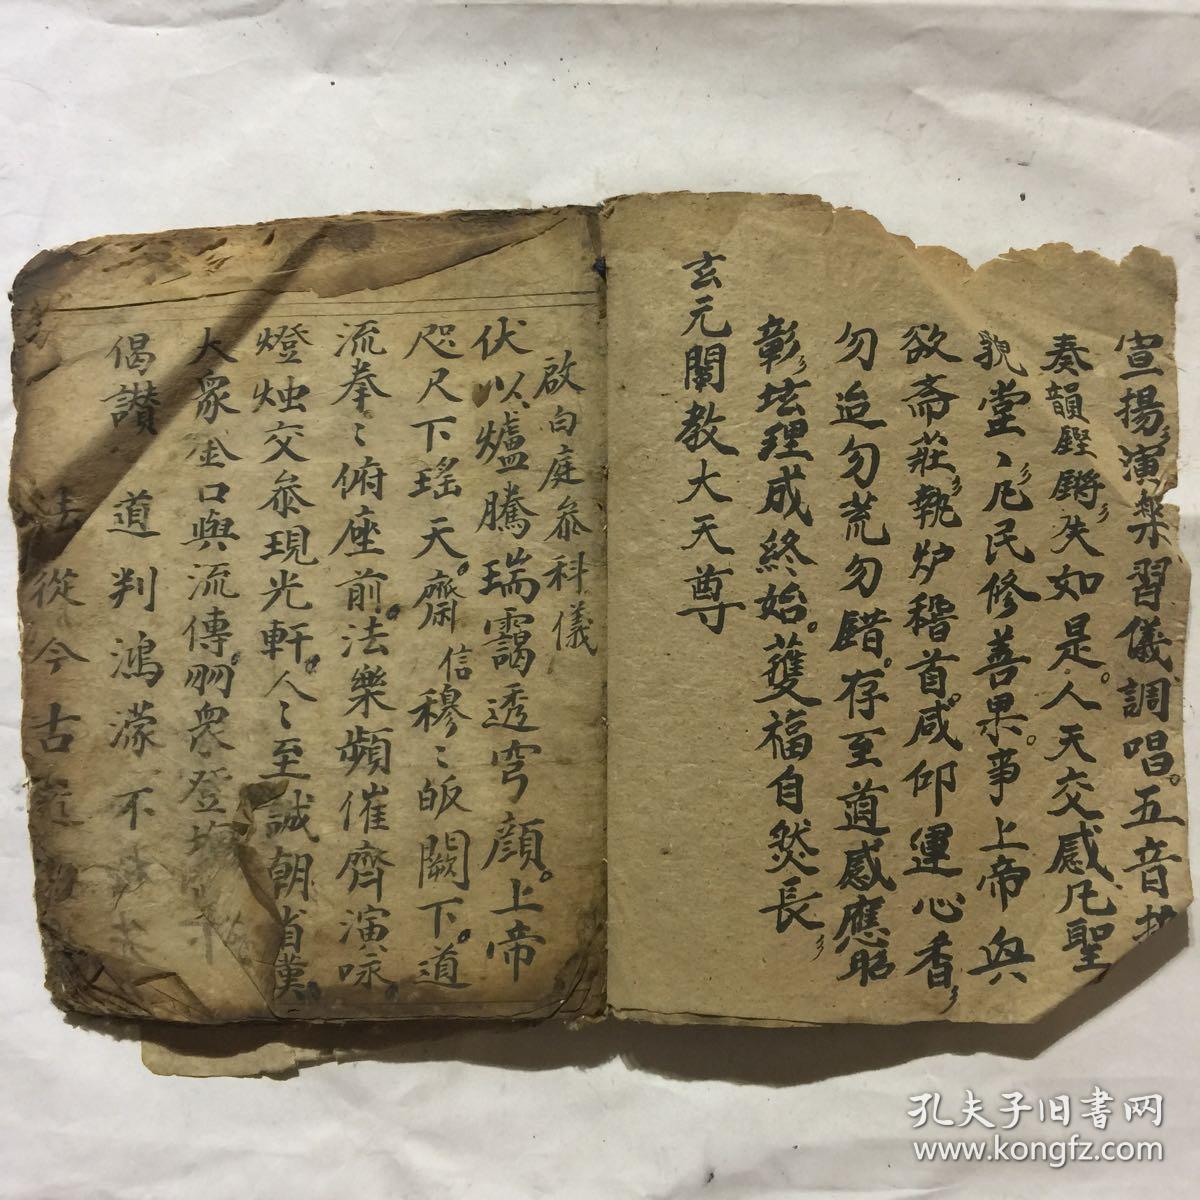 宣揚演樂習儀調唱。五音
奏韻鏗鏘失如是。人天交感凡聖
貌堂〻凡民修善果。事上帝與
欲斋莊執炉稽首。咸仰運心香
勿迨勿荒勿錯。存至道感應昭
彰坛理成終始。蒦福自然長
玄元闡教大天尊
啟白庭叅科儀
伏以爐騰瑞靄透穹顔。上帝
咫尺下瑤天。齋信穆〻皈闕下。道
流拳〻俯座前。法樂頻催齊演咏。
燈烛交叅現光軒。人〻至誠朝省奠。
大衆金口與流傳。嗍衆登
偈讃 道判鴻濛不
從今古
孔夫子旧书网
www.kongfz.com